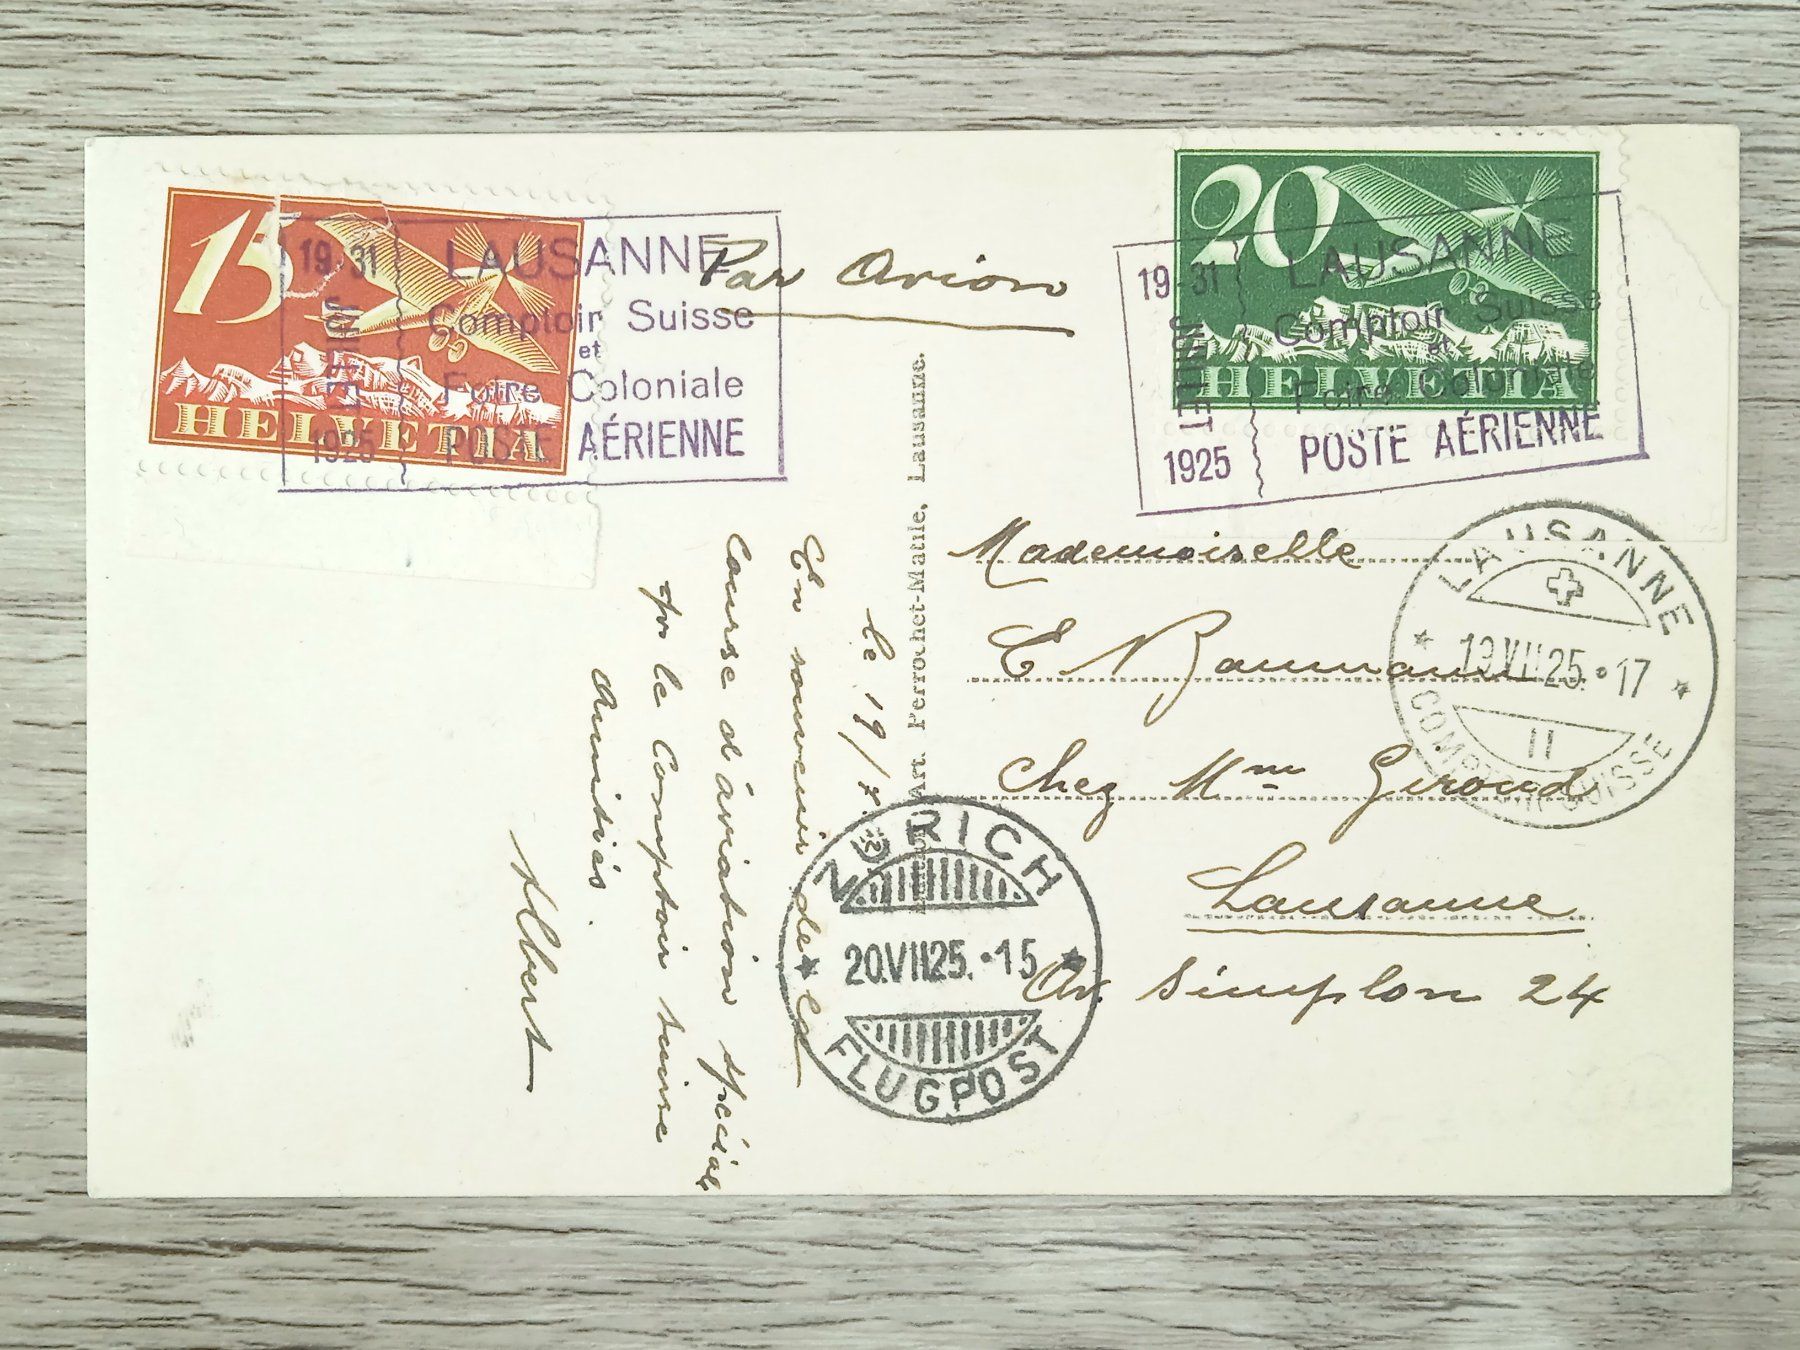 15
HELVETIA
19-31
JUILLET
1925
LAUSANNE
Comptoir Suisse
et
Foire Coloniale
POSTE AÉRIENNE
Par Avion
20
HELVETIA
19-31
JUILLET
1925
LAUSANNE
Comptoir Suisse
et
Foire Coloniale
POSTE AÉRIENNE
LAUSANNE
19.VII.25.•17
II
COMPTOIR SUISSE
Mademoiselle
E Baumann
Chez Mme Geroud
Lausanne
Av. Simplon 24
Art. Perrochet-Matile, Lausanne.
le 19/7.
En souvenir de la
Course d'aviation spéciale
pr le Comptoir suisse
Amitiés.
Albert
ZÜRICH
20.VII.25.•15
FLUGPOST